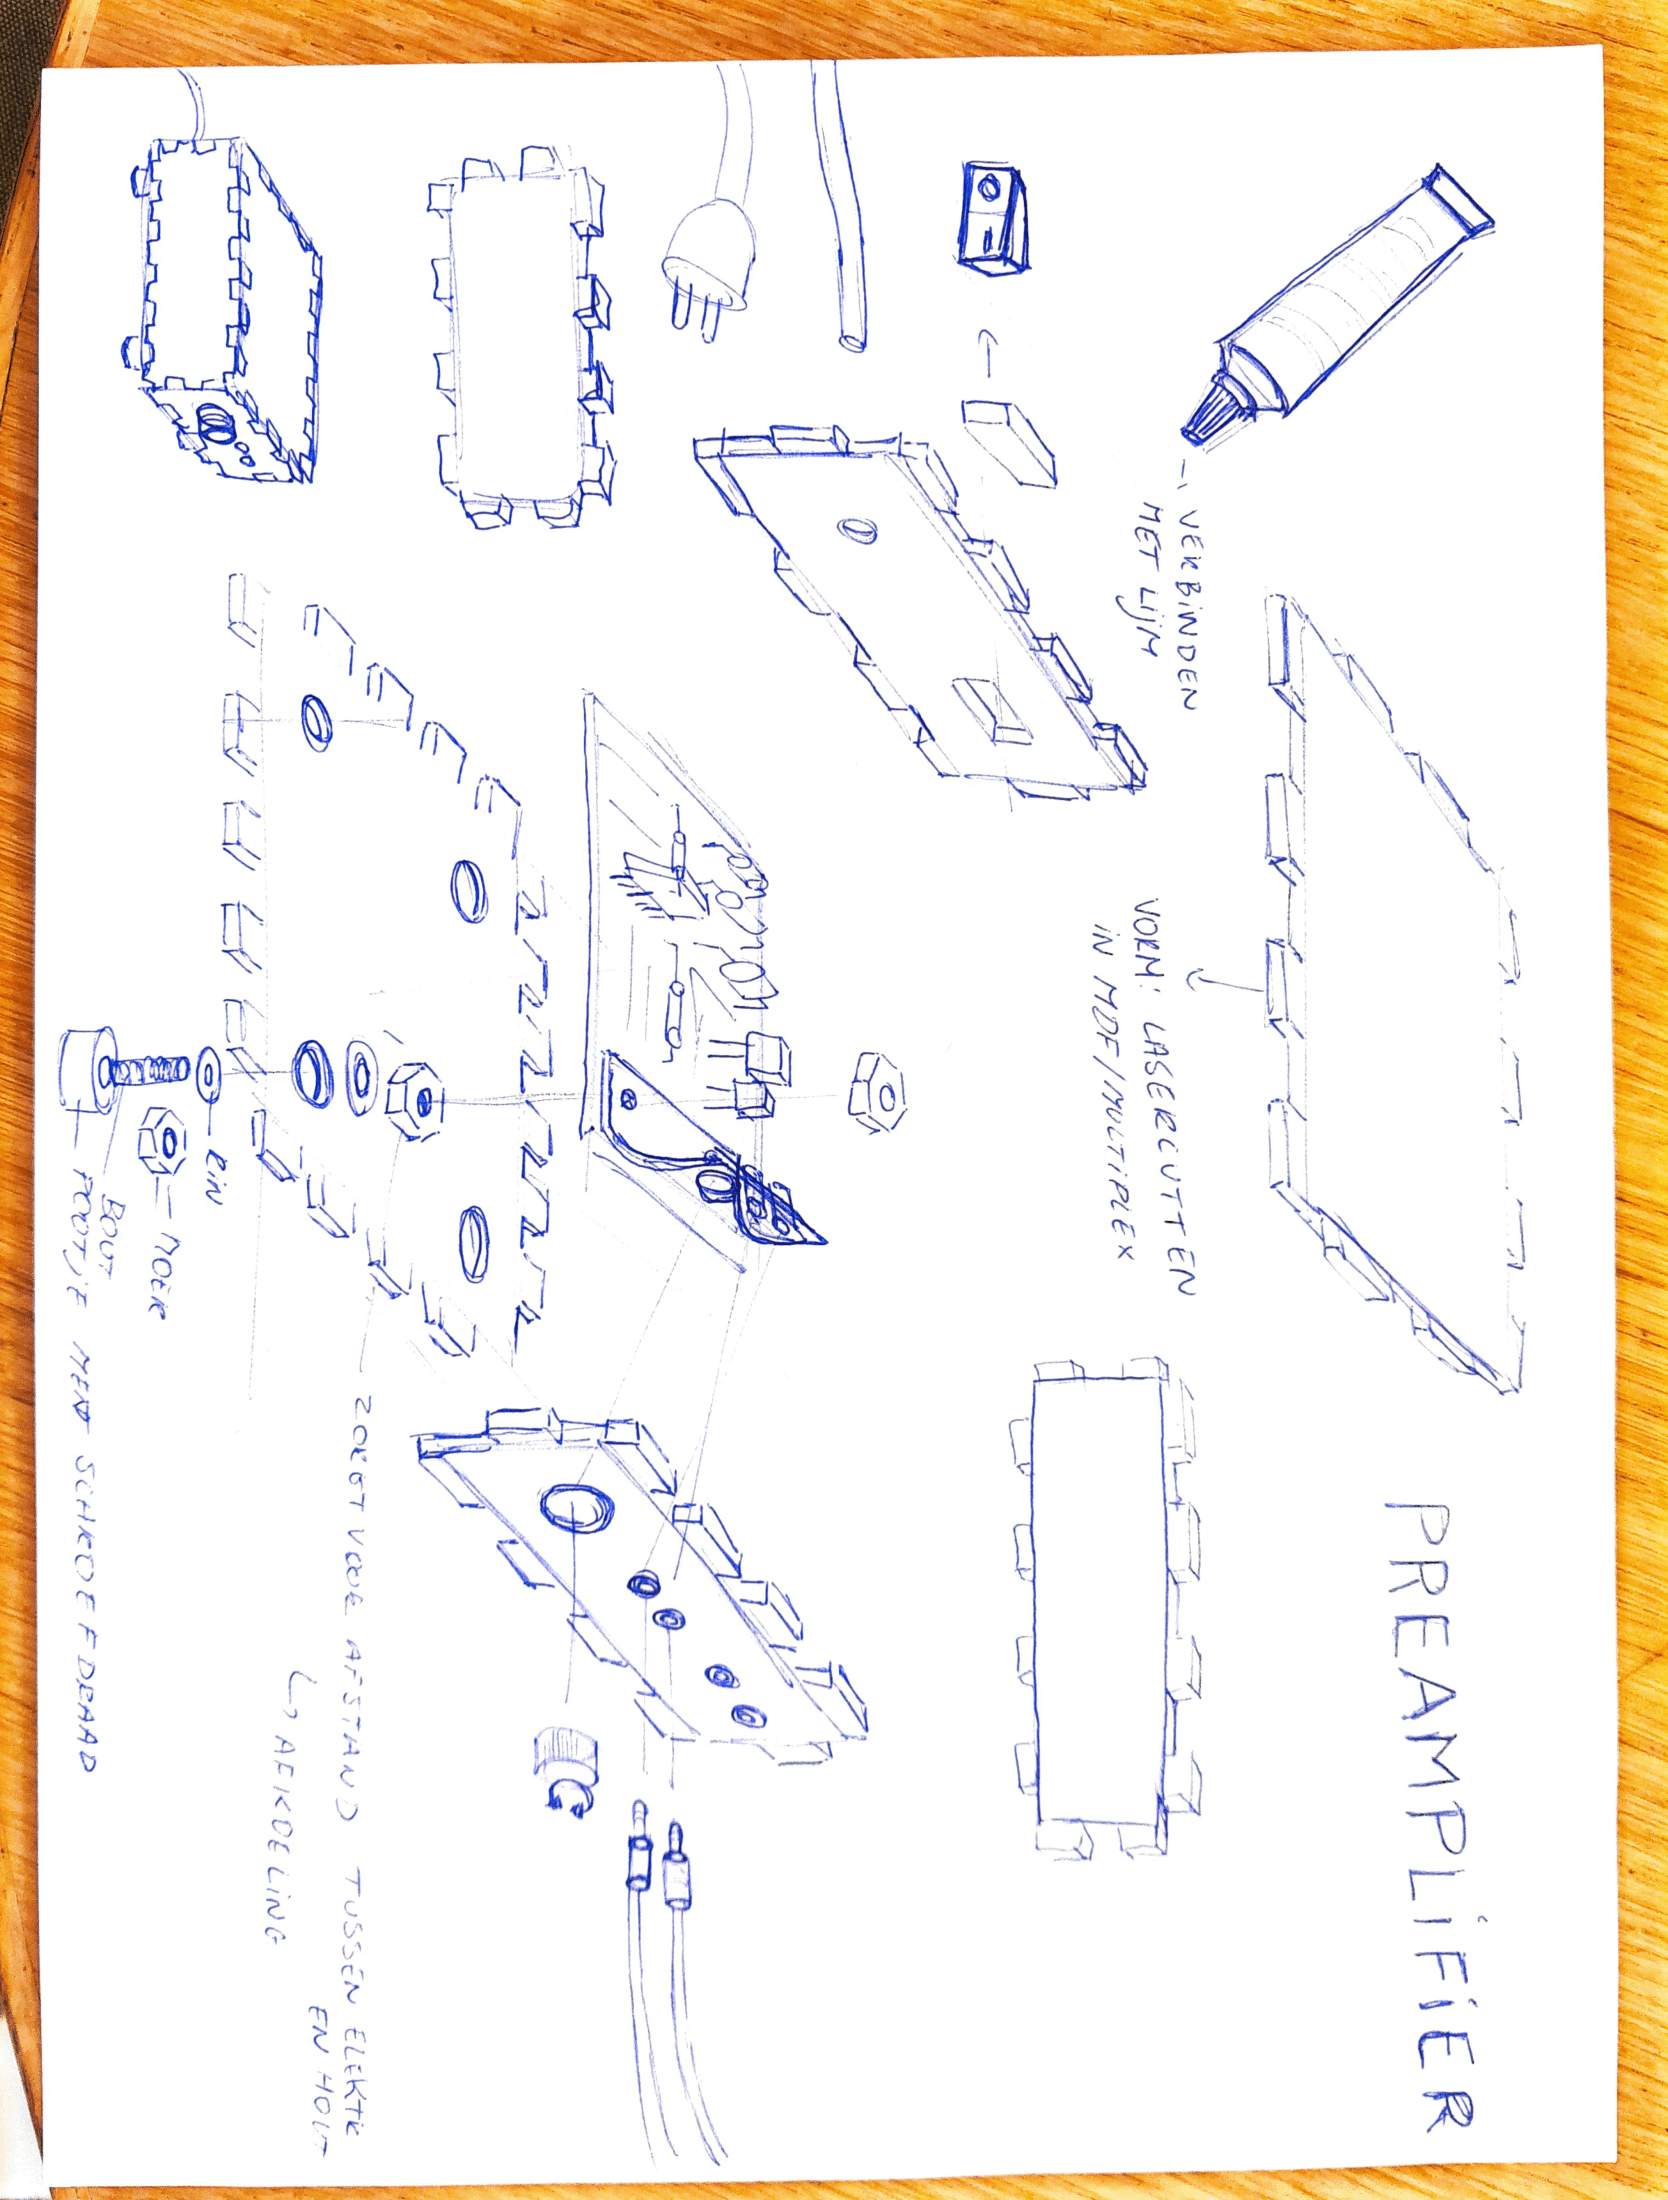 PREAMPLIFIER
VERBINDEN
MET LIJM
VORM: LASERCUTTEN
IN MDF/MULTIPLEX
ZORGT VOOR AFSTAND TUSSEN ELEKTR
EN HOUT
↳ AFKOELING
RIN
MOER
BOUT
POOTJE MET SCHROEFDRAAD